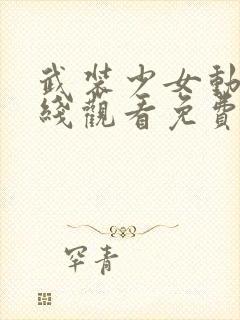 武裝少女動
綫觀看免費
罕青